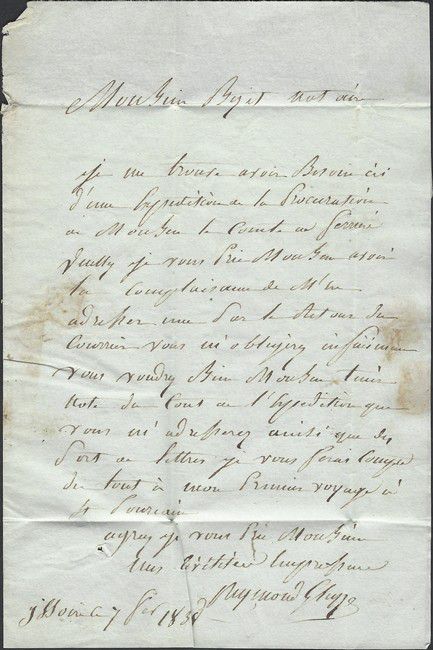 Monsieur Bizet notaire
je me trouve avoir Besoin ici
d'une Expedition de la Procuration
de Monsieur le Comte de
je vous Prie Monsieur avoir
la Complaisance de M'en
adresser une Par le Retour du
Courrier vous m'obligerez infiniment
vous voudrez Bien Monsieur tenir
note du Cout de l'Expedition que
vous m'adresserez ainsi que des
Port de lettres je vous ferai Compte
du tout à mon Premier voyage à
St Pourcain
agreez je vous Prie Monsieur
Mes Civilités Empressées
Raymond
ce 7 183